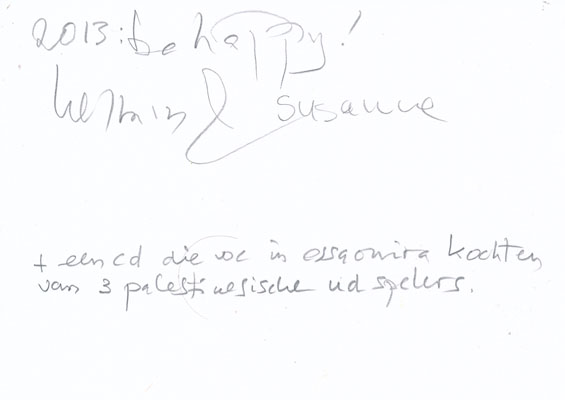 2013: be happy!
Hermin & Susanne
+ een cd die we in essaouira kochten
van 3 palestinesische ud spelers.